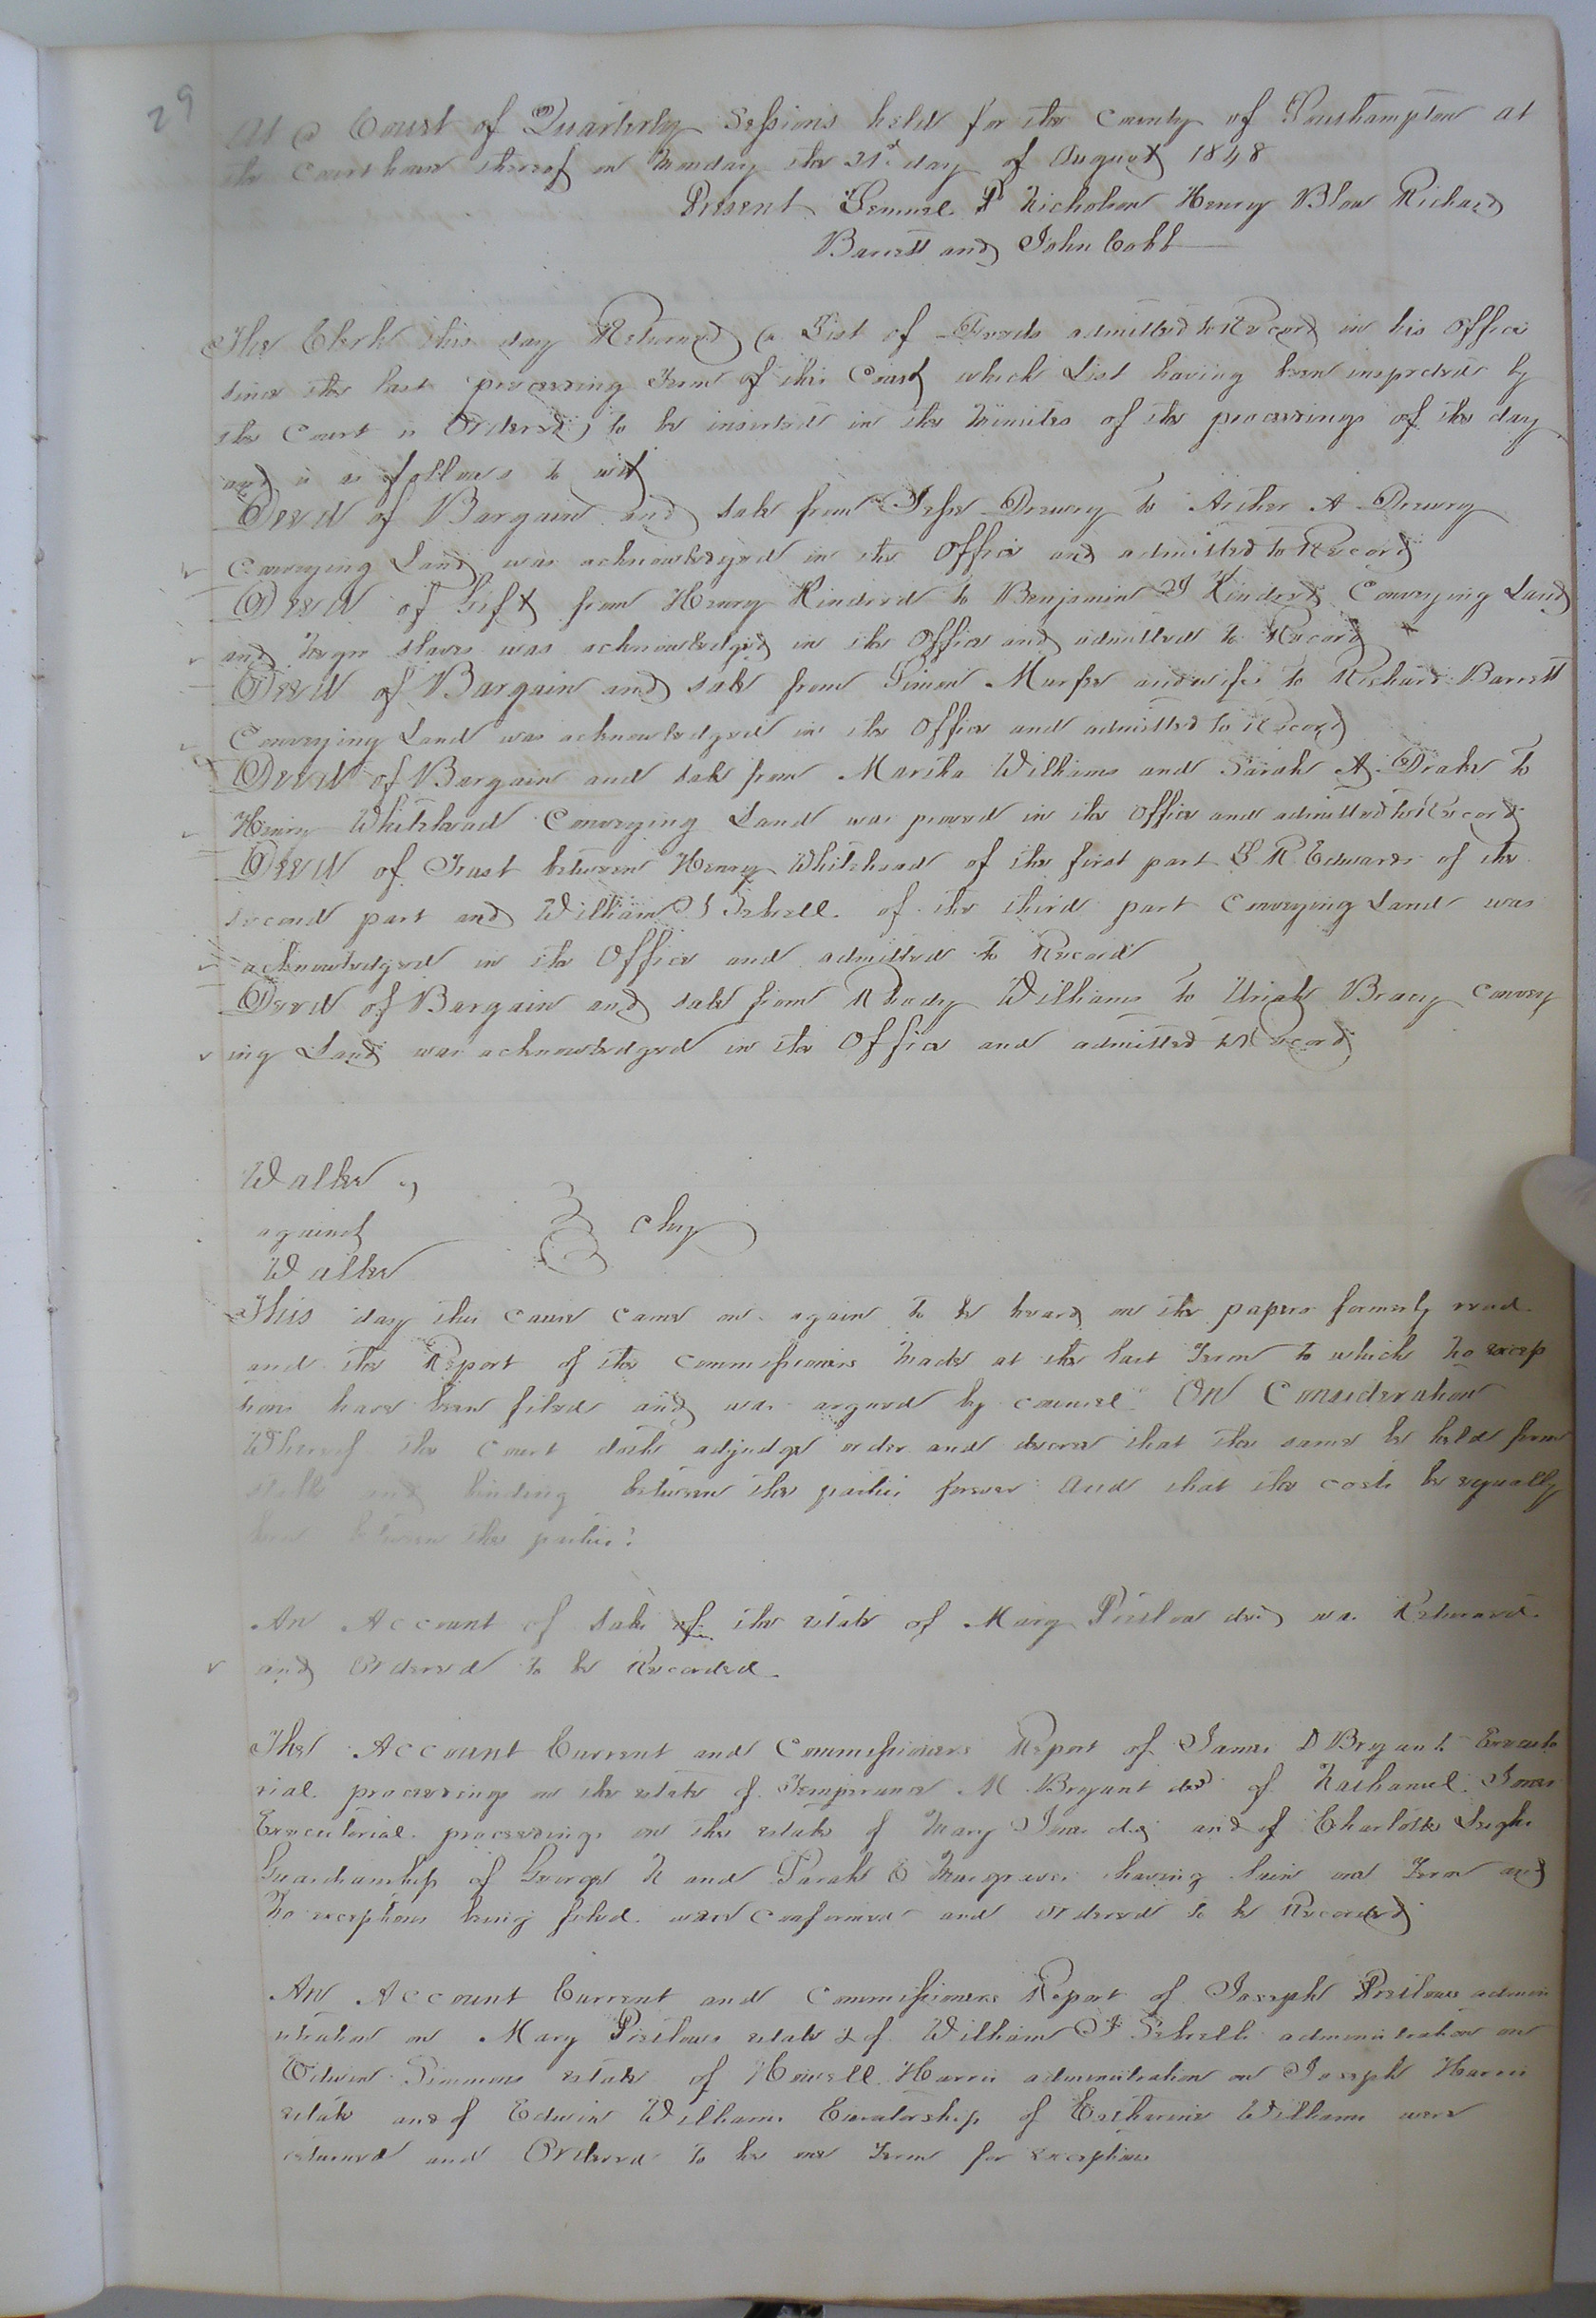 29
At a Court of Quarterly Sessions held for the County of Southampton at
the Courthouse thereof on Monday the 21st day of August 1848
Present Samuel B Nicholson Henry Blow Richard
Barrett and John Cobb
The Clerk this day Returned a List of Deeds admitted to Record in his office
since the last preceeding Term of this Court which List having been inspected by
the Court is Ordered to be inserted in the Minutes of the proceedings of the day
and is as follows to wit
Deed of Bargain and sale from Jesse Drewry to Archer A Drewry
Conveying Land was acknowledged in the Office and admitted to Record
Deed of Gift from Henry Kindred to Benjamin J Kindred Conveying Land
and Negro Slaves was acknowledged in the Office and admitted to Record
Deed of Bargain and sale from Simon Murfee and wife to Richard Barrett
Conveying Land was acknowledged in the Office and admitted to Record
Deed of Bargain and sale from Marsha Williams and Sarah A Drake to
Henry Whitehead Conveying Land was proved in the Office and admitted to Record
Deed of Trust between Henry Whitehead of the first part L R Edwards of the
second part and William J Sebrell of the third part Conveying Land was
acknowledged in the Office and admitted to Record
Deed of Bargain and sale from Rhody Williams to Uriah Bracy Convey
ing Land was acknowledged in the Office and admitted to Record
Waller
against
Waller
Chy
This day this cause came on again to be heard on the papers formerly read
and the Report of the commissioners Made at the last Term to which No excep
tions have been filed and was argued by counsel On Consideration
Whereof the Court doth adjudge order and decree that the same be held firm
stable and binding between the parties forever And that the costs be equally
born between the parties
An Account of Sale of the estate of Mary Pretlow decd was Returned
and Ordered to be Recorded
The Account Current and Commissioners Report of James D Bryants Executo
rial proceedings on the estate of Temperance M Bryant decd of Nathaniel Jones
Executorial proceedings on the estate of Mary Jones decd and of Charlotte Leighs
Guardianship of George N and Sarah E Musgraves having lain one Term and
No exceptions being filed were confirmed and ordered to be Recorded
An Account Current and Commissioners Report of Joseph Pretlows admin
istration on Mary Pretlows estate & of William J Sebrells administration on
Edwin Simmons estate of Howell Harris administration on Joseph Harris
estate and of Edwin Williams Curatorship of Catharine Williams were
returned and Ordered to lie one Term for exceptions